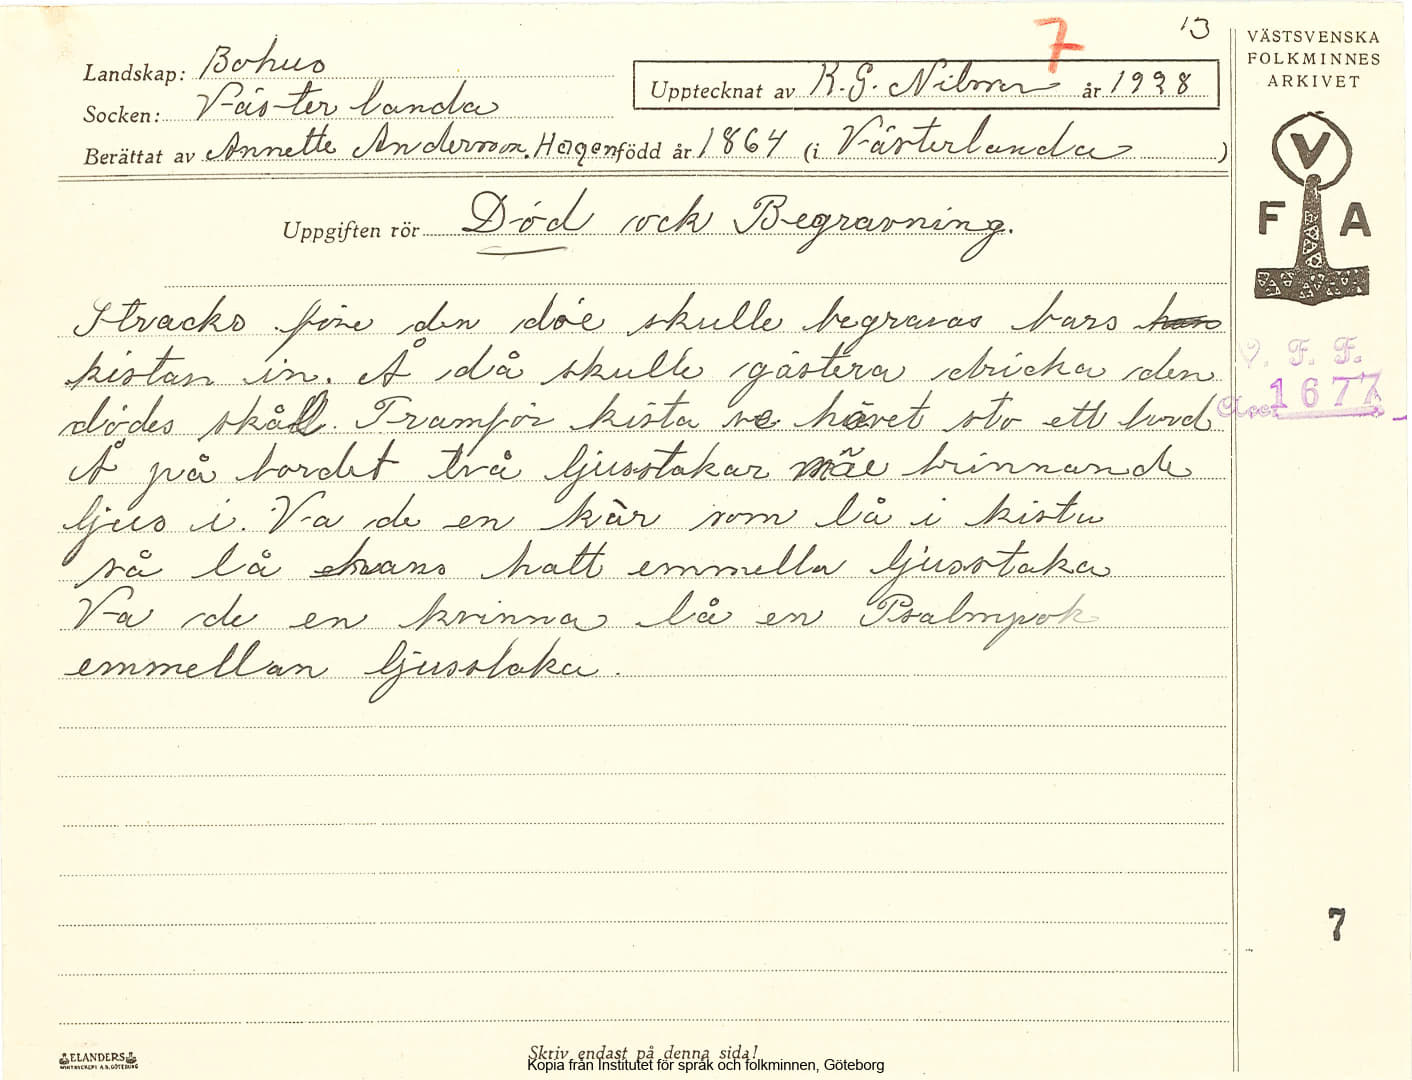 13
7
Landskap: Bohus
Socken: Västerlanda
Upptecknat av K. G. Nilson år 1928
Berättat av Annette Anderson. Hagen född år 1864 (i Västerlanda)
VÄSTSVENSKA
FOLKMINNES
ARKIVET
V
F A
Uppgiften rör Död ock Begravning.
Stracks före den döe skulle begravas bars han
kistan in. Å då skulle gästera dricka den
dödes skåll. Framför kista ve hävet sto ett bord
Å på bordet två ljusstakar mäe brinnande
ljus i. Va de en kàr som lå i kista
så lå hans hatt emmella ljusstaka
Va de en kvinna lå en Psalmpok
emmellan ljusstaka.
V. F. F.
Acc. 1677
7
ELANDERS
Skriv endast på denna sida!
Kopia från Institutet för språk och folkminnen, Göteborg